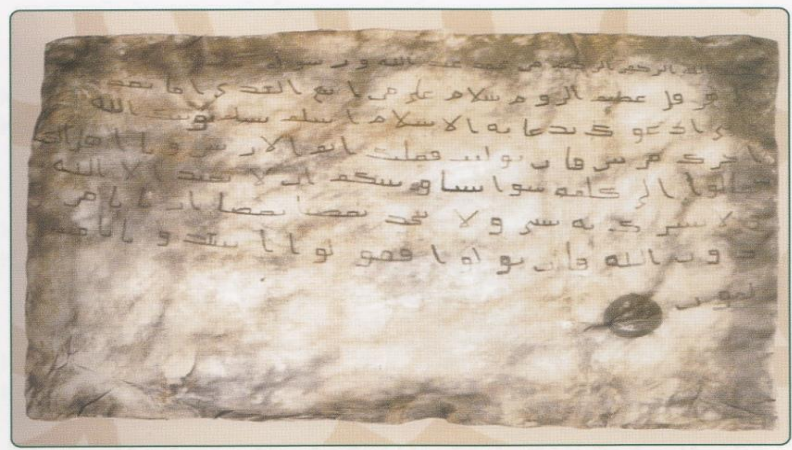 بسم الله الرحمن الرحيم من محمد عبد الله و رسوله
الى هرقل عظيم الروم سلام على من اتبع الهدى اما بعد
فانى ادعوك بدعايه الاسلام اسلم تسلم يوتك الله
اجرك مرتين فان توليت فعليك اثم الاريسين و يا اهل الكتاب
تعالوا الى كلمه سوا بيننا وبينكم ان لا نعبد الا الله
ولا نشرك به شيا ولا يتخذ بعضنا بعضا اربابا من
دون الله فان تولوا فقولوا اشهدوا بانا مسـ
لمون